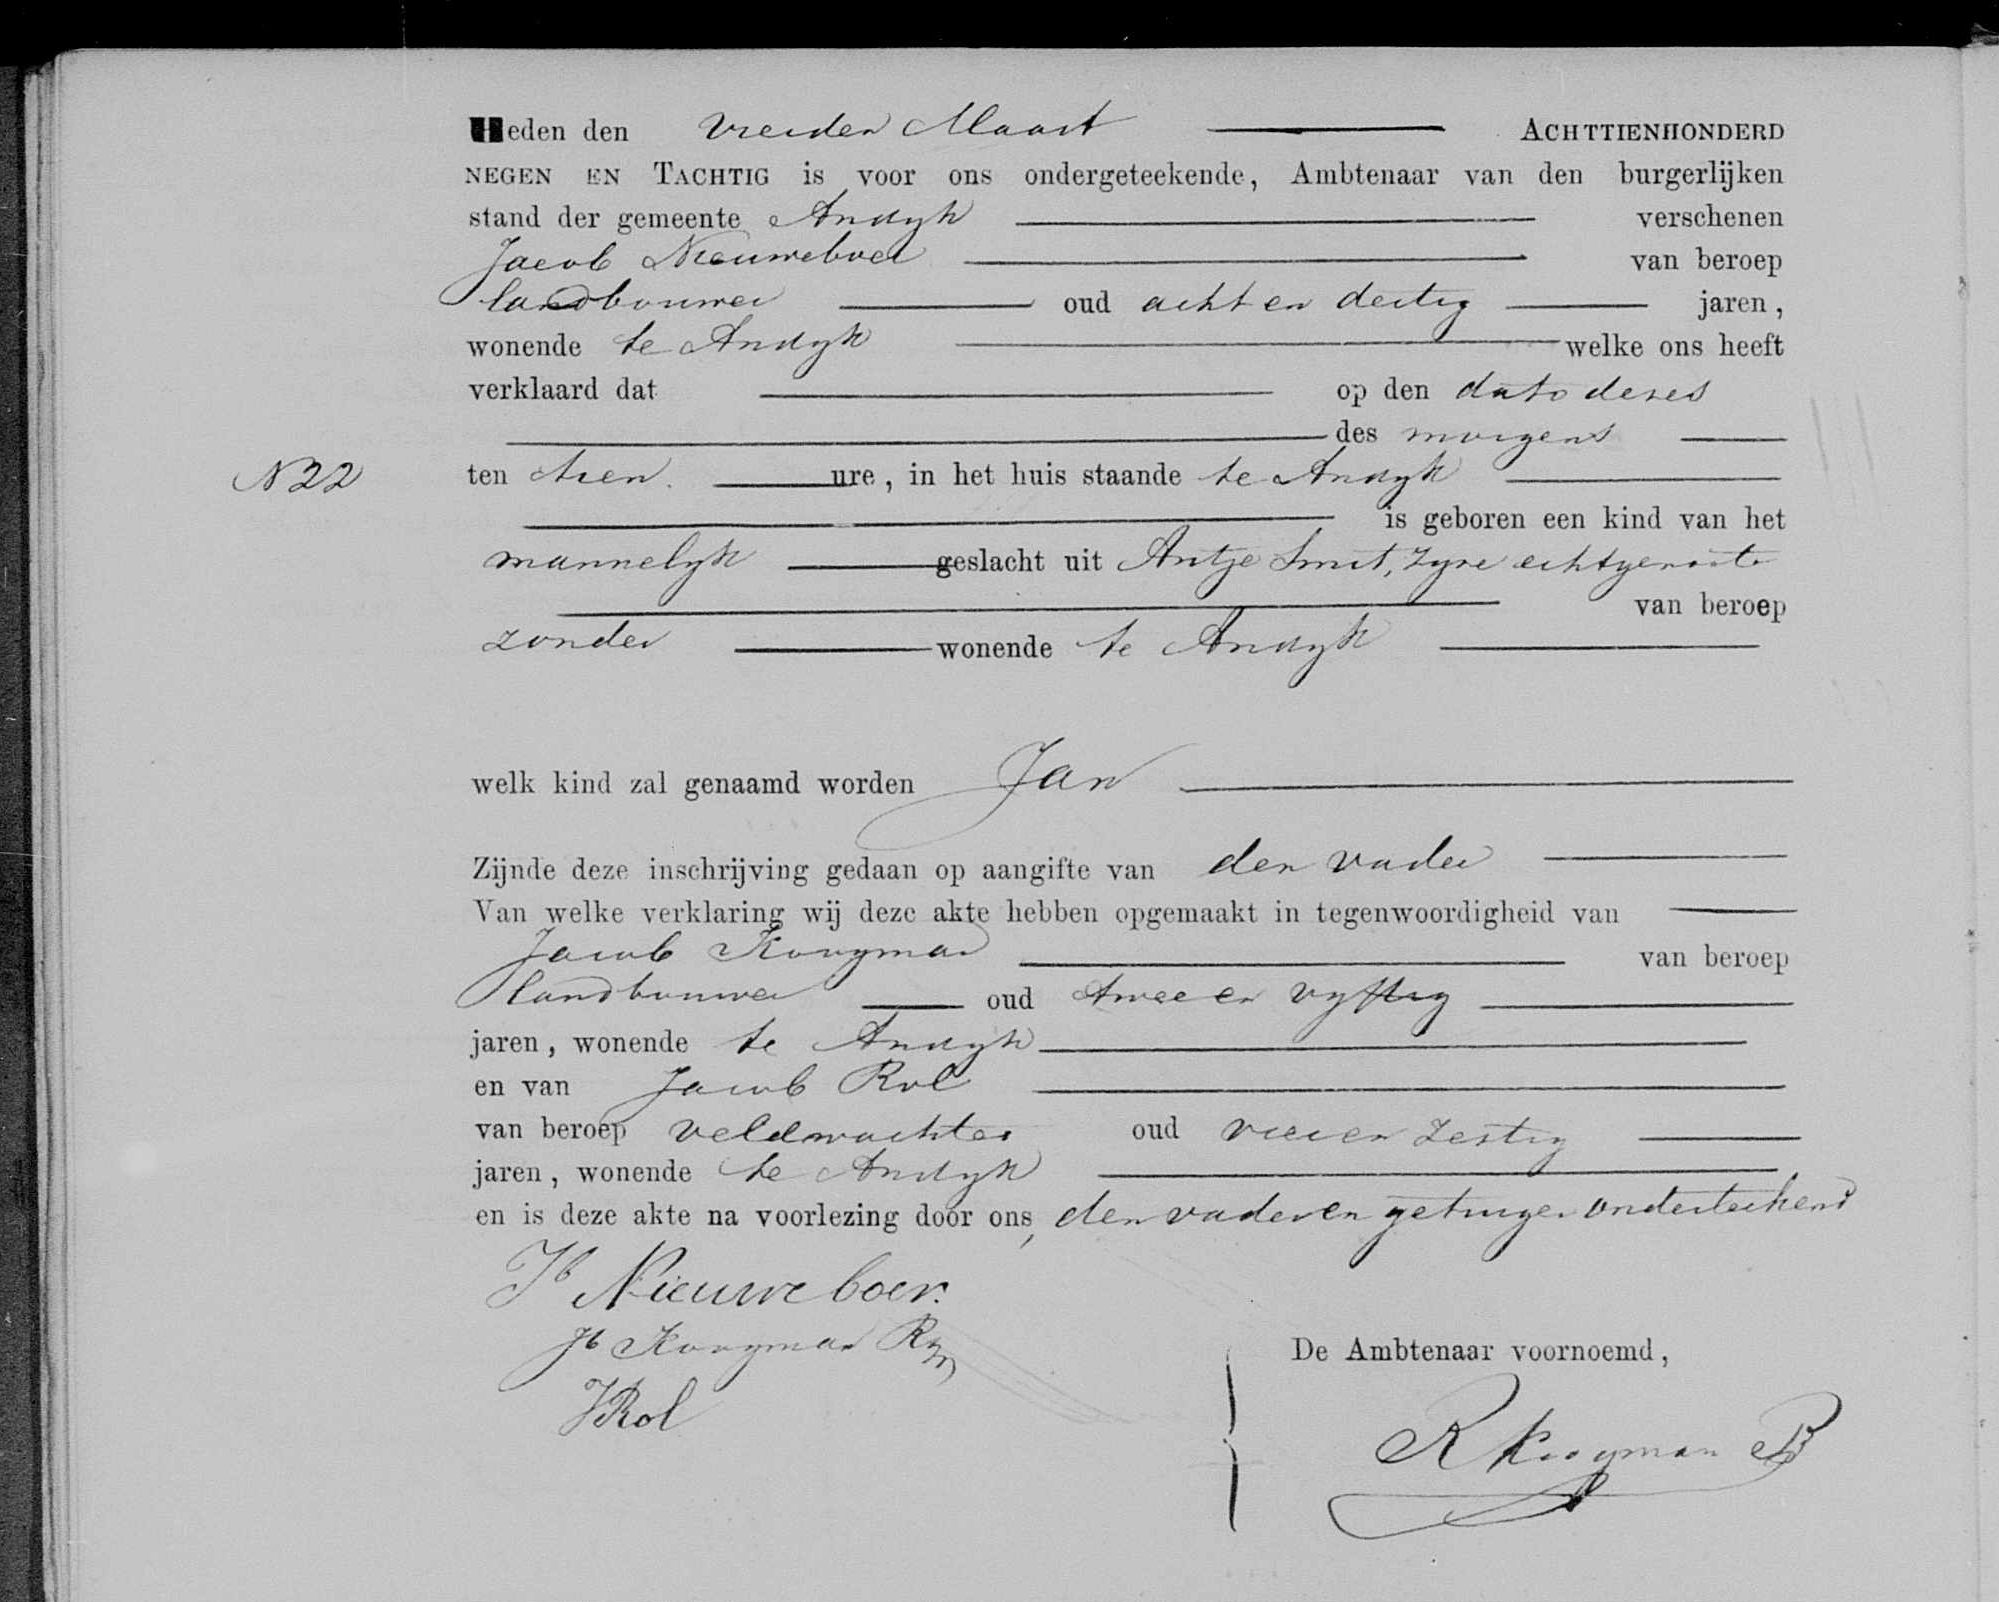 Heden den vierden Maart ACHTTIENHONDERD
NEGEN EN TACHTIG is voor ons ondergeteekende, Ambtenaar van den burgerlijken
stand der gemeente Andyk verschenen
Jacob Nieuweboer van beroep
landbouwer oud acht en dertig jaren,
wonende te Andyk welke ons heeft
verklaard dat op den dato dezes
des morgens
N 22 ten tien ure, in het huis staande te Andyk
is geboren een kind van het
mannelyk geslacht uit Antje Smit, zyne echtgenoote
van beroep
zonder wonende te Andyk
welk kind zal genaamd worden Jan
Zijnde deze inschrijving gedaan op aangifte van den vader
Van welke verklaring wij deze akte hebben opgemaakt in tegenwoordigheid van
Jacob Kooyman van beroep
landbouwer oud twee en vyftig
jaren, wonende te Andyk
en van Jacob Rol
van beroep veldwachter oud vier en zestig
jaren, wonende te Andyk
en is deze akte na voorlezing door ons, den vader en getuigen onderteekend
Jb Nieuweboer.
Jb Kooyman Rzn
JRol
De Ambtenaar voornoemd,
R Kooyman